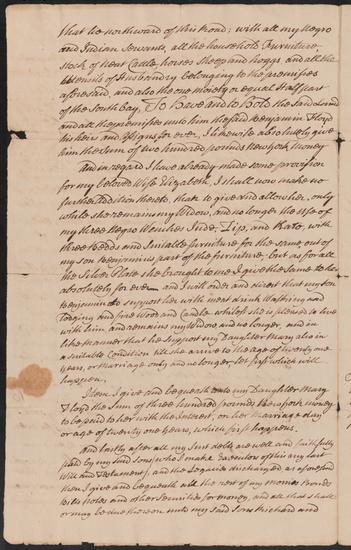 that lie northward of this Road; with all my Negro
and Indian Servants, all the household Furniture
Stock of Neat Cattle, horses Sheep and hoggs and all the
Utensils of Husbandry belonging to the premisses
aforesaid, and also the one moiety or equal half part
of the South Bay, To Have and to Hold the said Land
and all the premisses unto him the said Benjamin Floyd
his heirs and assigns for ever, I likewise absolutely give
him the Sum of two hundred pounds New york money
And in regard I have already made some provision
for my beloved Wife Elizabeth, I shall now make no
further addition thereto, than to give and allow her, only
while she remains my Widow, and no longer the use of
my three Negro Wenches Jude, Tip, and Kate, with
three Bedds and Suitable furniture for the same, out of
my son Benjamins part of the furniture, but as for all
the Silver Plate she brought to me I give the same to her
absolutely for ever and I will order and direct that my son
Benjamin to support her with meat drink Washing and
Lodging and fire Wood and Candle whilst she is pleased to live
with him, and remains my Widow and no longer, and in
like manner that he Support my Daughter Mary also in
a suitable Condition till she arrive to the age of twenty one
years, or marriage only and no longer let first which will
happen.
Item I give and bequeath unto my Daughter Mary
Floyd the Sum of three hundred pounds New york money
to be paid to her with the Interest, on her marriage day
or age of twenty one years, which first happens.
And lastly after all my Just debts are well and faithfully
paid by my said sons, who I make Executors of this my last
Will and Testament, and the Legacies discharged as aforesaid
then I give and bequeath all the rest of my monies Bonds
Bills notes and other Securities for money, and all that shall
or may be due thereon unto my said Sons Richard and